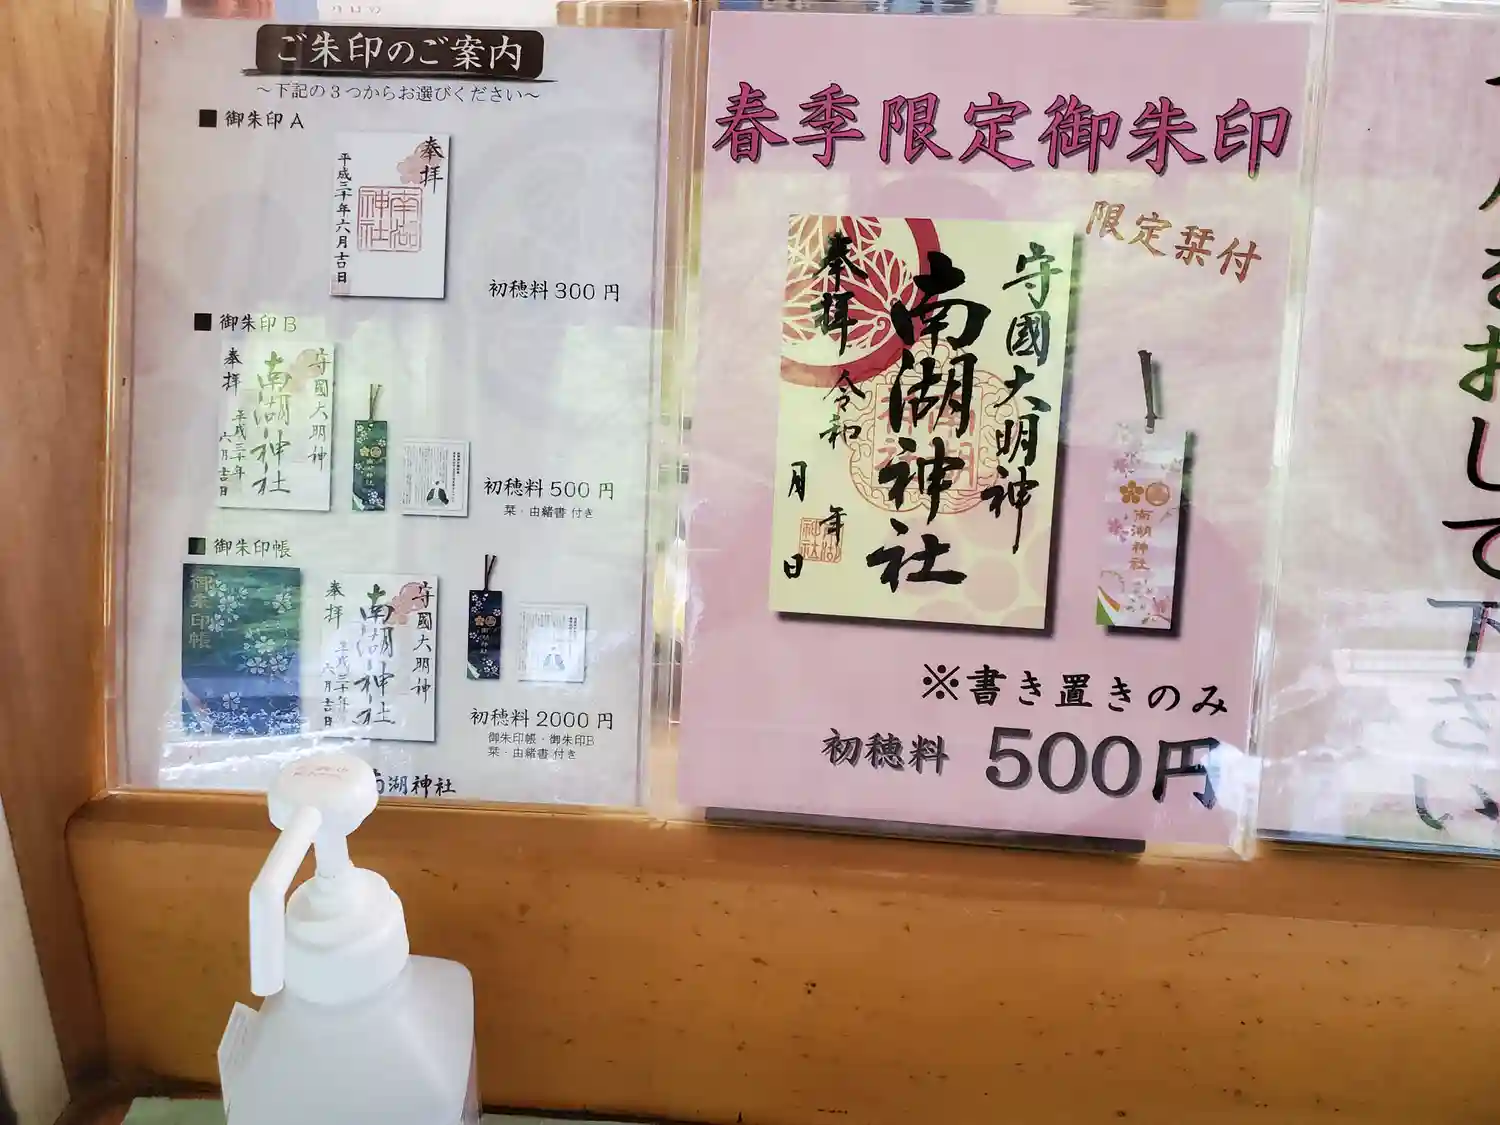 ご朱印のご案内
～下記の3つからお選びください～
■ 御朱印 A
奉拝
南湖神社
平成三十年六月吉日
初穂料 300 円
■ 御朱印 B
守國大明神
南湖神社
奉拝
平成三十年
六月吉日
初穂料 500 円
栞・由緒書 付き
■ 御朱印帳
御朱印帳
守國大明神
南湖神社
奉拝
平成三十年
六月吉日
南湖神社
初穂料 2000 円
御朱印帳・御朱印B
栞・由緒書 付き
南湖神社
春季限定御朱印
限定栞付
守國大明神
南湖神社
奉拝
令和 年
月 日
南湖神社
※書き置きのみ
初穂料 500円
をおして下さい